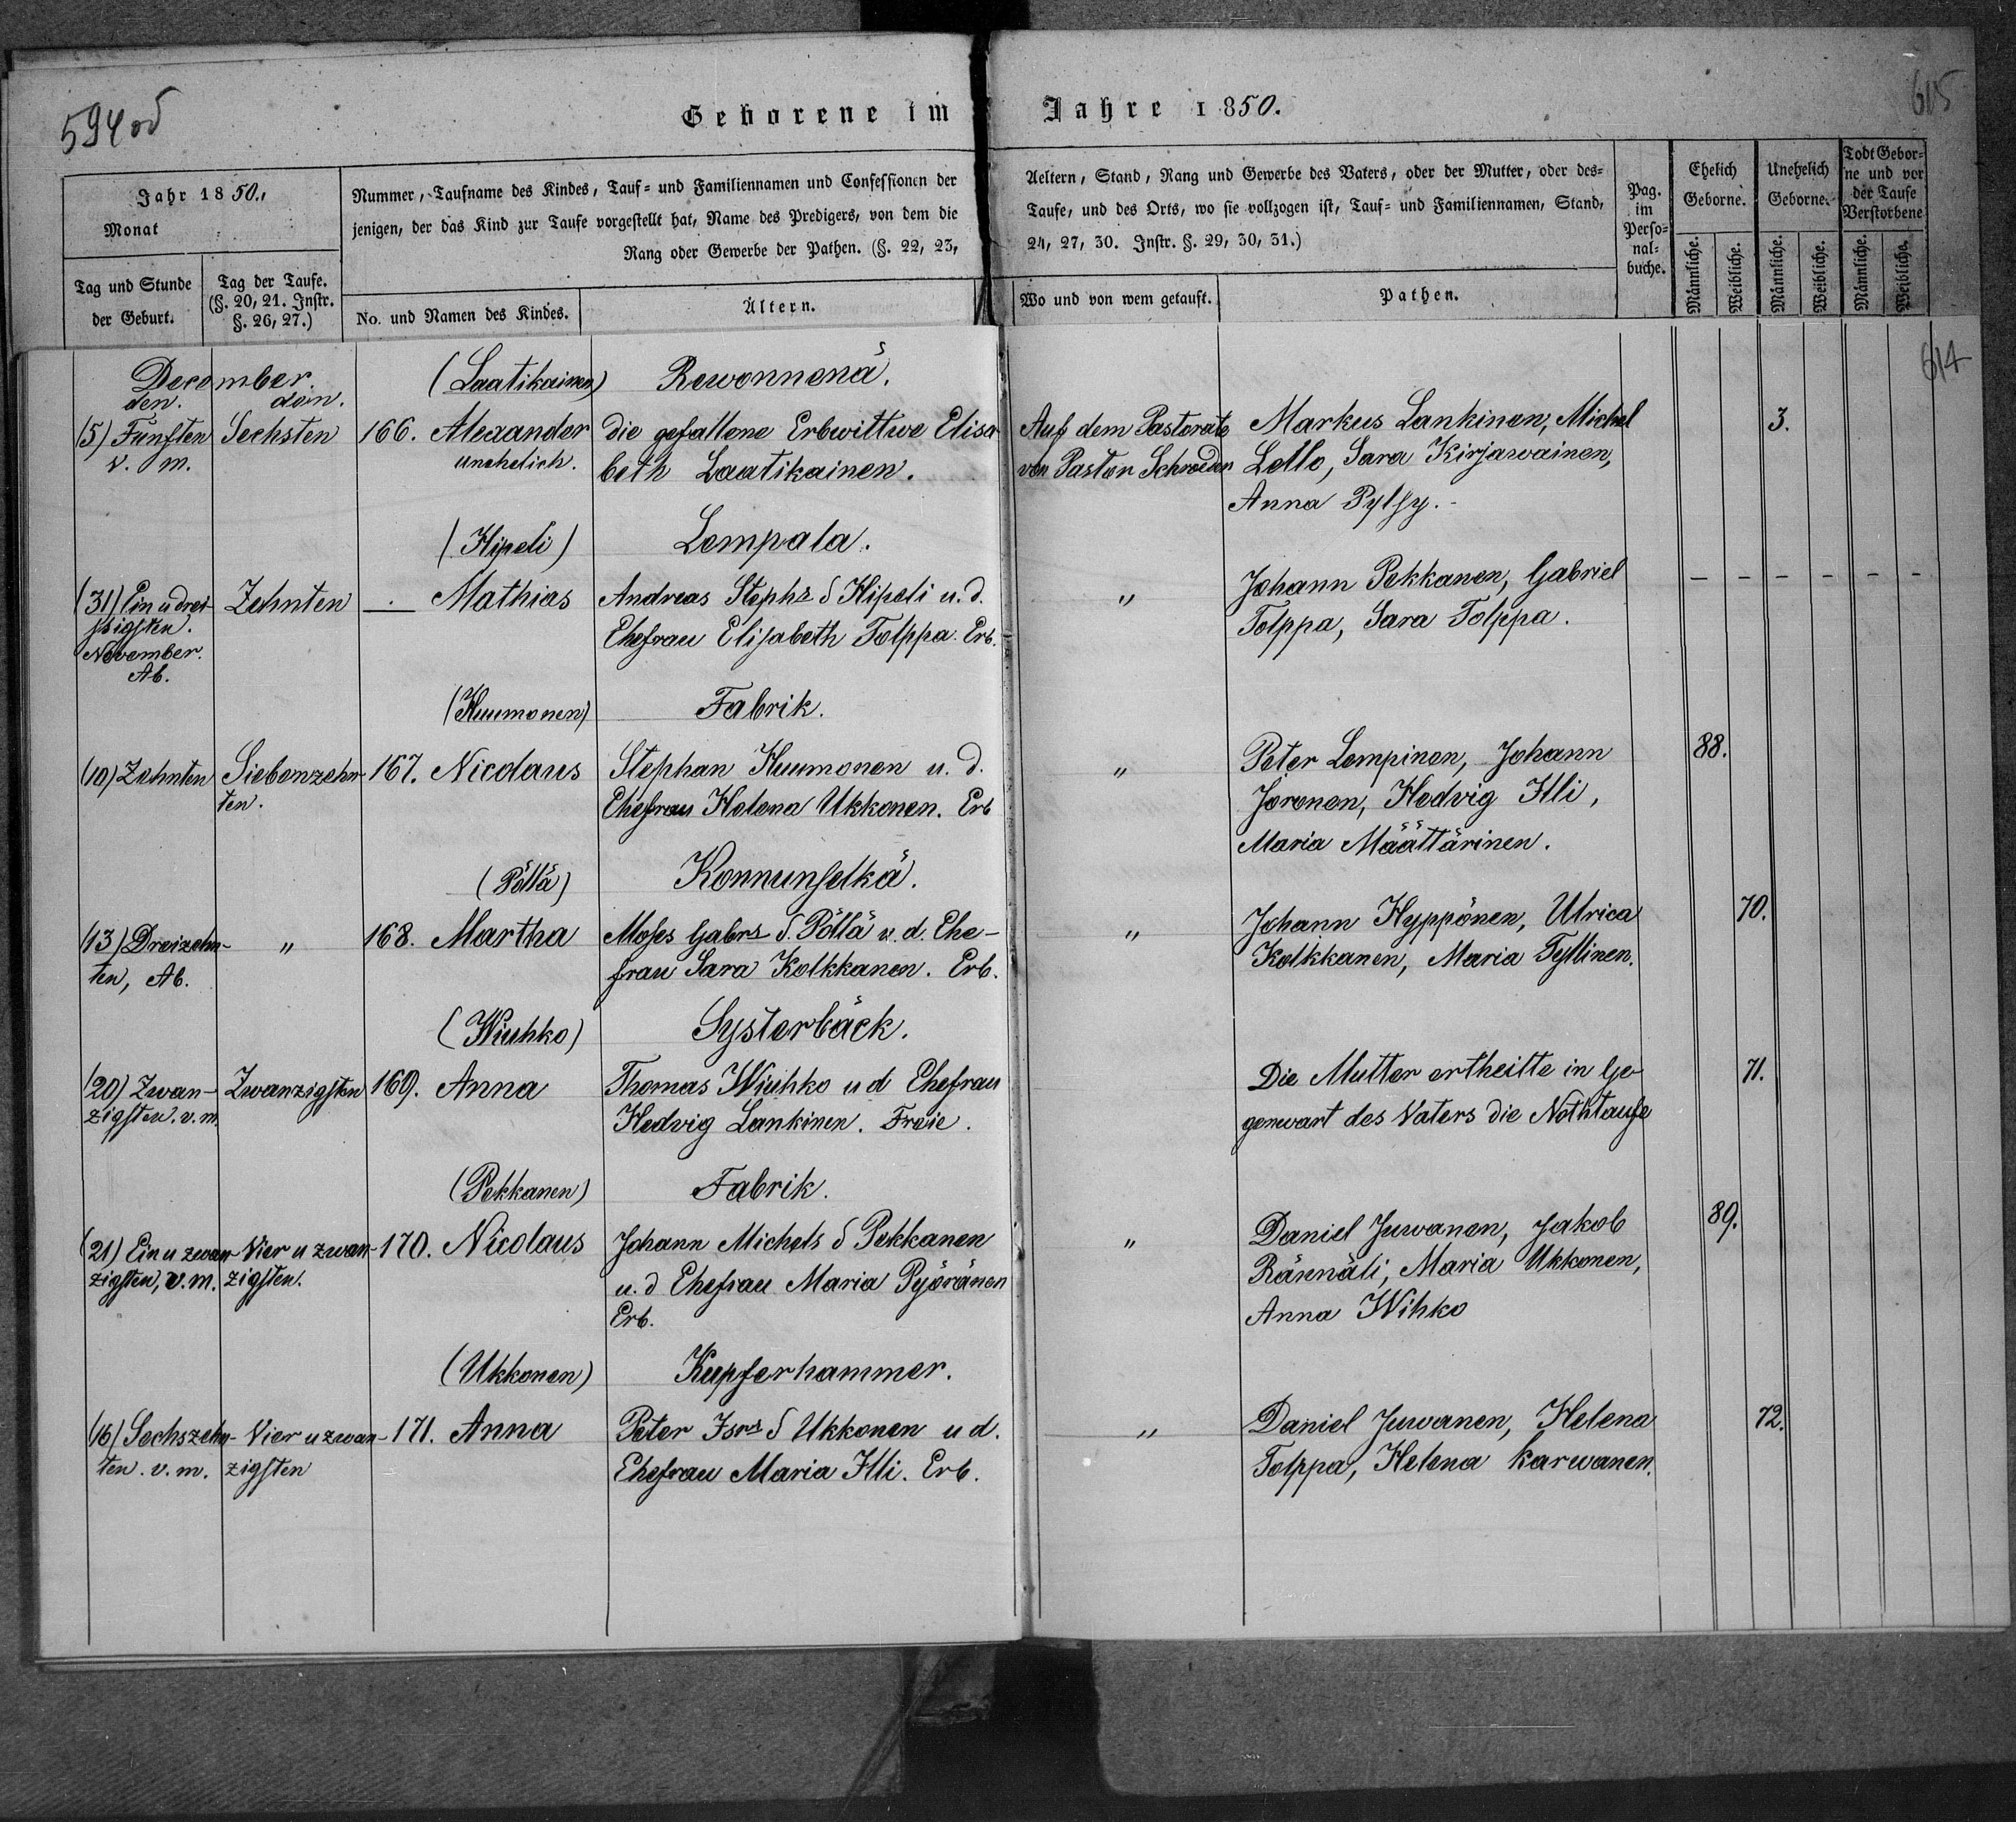 594 od
615
Geborene im Jahre 1850.
Jahr 1850.
Monat
Tag und Stunde der Geburt.
Tag der Taufe. (§. 20, 21. Instr. §. 26, 27.)
Nummer, Taufname des Kindes, Tauf- und Familiennamen und Confessionen der Aeltern, Stand, Rang und Gewerbe des Vaters, oder der Mutter, oder des-
jenigen, der das Kind zur Taufe vorgestellt hat, Name des Predigers, von dem die Taufe, und des Orts, wo sie vollzogen ist, Tauf- und Familiennamen, Stand,
Rang oder Gewerbe der Pathen. (§. 22, 23, 24, 27, 30. Instr. §. 29, 30, 31.)
No. und Namen des Kindes.
Ältern.
Wo und von wem getauft.
Pathen.
Pag. im Perso- nal- buche.
Ehelich Geborne.
Unehelich Geborne.
Todt Gebor- ne und vor der Taufe Verstorbene
Männliche. Weibliche. Männliche. Weibliche. Männliche. Weibliche.
614
December.
den. den.
(Laatikainen) Rewonnenä.
(5) Fünften Sechsten 166. Alexander die gefallene Erbwittwe Elisa- Auf dem Pastorate Markus Lankinen, Michel 3.
v. m. unehelich. beth Laatikainen. von Pastor Schroeder Lello, Sara Kirjawainen,
Anna Pylsy.
(Hipeli) Lempala.
(31) Ein u drei- Zehnten — Mathias Andreas Stephs S Hipeli u. d. " Johann Pekkanen, Gabriel - - - - - -
ssigsten. Ehefrau Elisabeth Tolppa. Erb. Tolppa, Sara Tolppa.
November.
Ab.
(Huumonen) Fabrik.
(10) Zehnten Siebenzehn- 167. Nicolaus Stephan Huumonen u. d. " Peter Lempinen, Johann 88.
ten. Ehefrau Helena Ukkonen. Erb Joronen, Hedvig Illi,
Maria Määttärinen.
(Pöllä) Konnunselkä.
(13) Dreizehn- " 168. Martha Moses Gabrs S. Pöllä u. d. Ehe- " Johann Hyppönen, Ulrica 70.
ten, Ab. frau Sara Kolkkanen. Erb. Kolkkanen, Maria Tyllinen.
(Wiuhko) Systerbäck.
(20) Zwan- Zwanzigsten 169. Anna Thomas Wiuhko u d Ehefrau Die Mutter ertheilte in Ge- 71.
zigsten. v. m. Hedvig Lankinen. Freie. genwart des Vaters die Nothtaufe
(Pekkanen) Fabrik.
(21) Ein u zwan- Vier u zwan- 170. Nicolaus Johann Michels S Pekkanen " Daniel Juwanen, Jakob 89.
zigsten, v. m. zigsten. u. d Ehefrau Maria Pyöränen Rännäli, Maria Ukkonen,
Erb. Anna Wihko
(Ukkonen) Kupferhammer.
(16) Sechszehn- Vier u zwan- 171. Anna Peter Isrs S Ukkonen u d. " Daniel Juwanen, Helena 72.
ten. v. m. zigsten Ehefrau Maria Illi. Erb. Tolppa, Helena Karwanen.